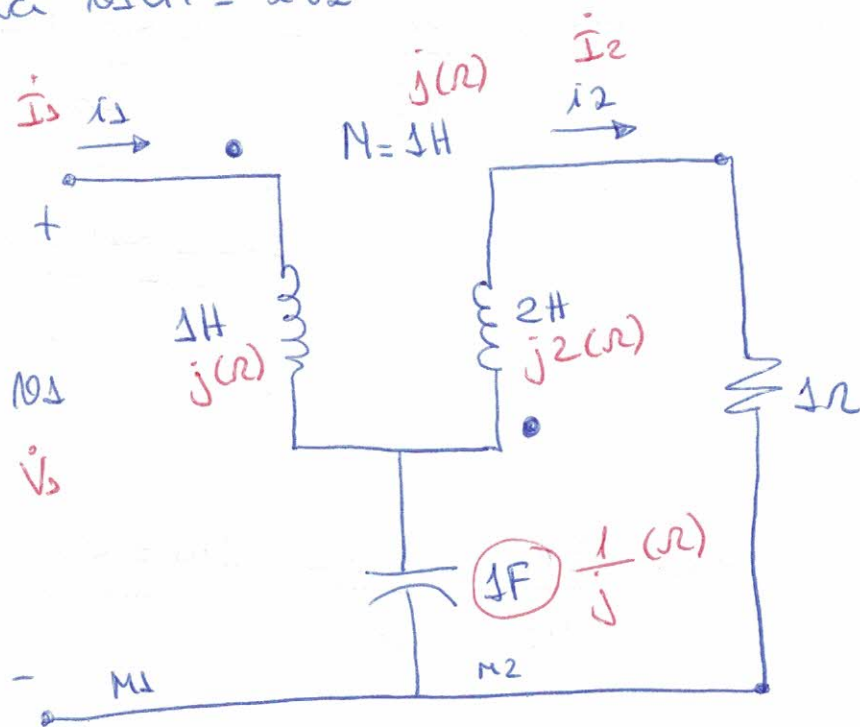 İ1 i1
M=1H j(Ω)
İ2
i2
+
1H
j(Ω)
2H
j2(Ω)
1Ω
v1
V̇1
1F 1/j (Ω)
-
M1
M2